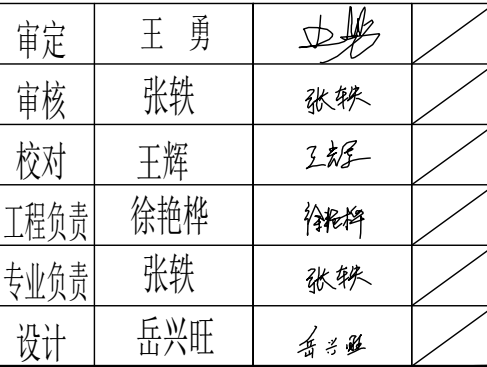 审定 王 勇 王勇
审核 张轶 张轶
校对 王辉 王辉
工程负责 徐艳桦 徐艳桦
专业负责 张轶 张轶
设计 岳兴旺 岳兴旺